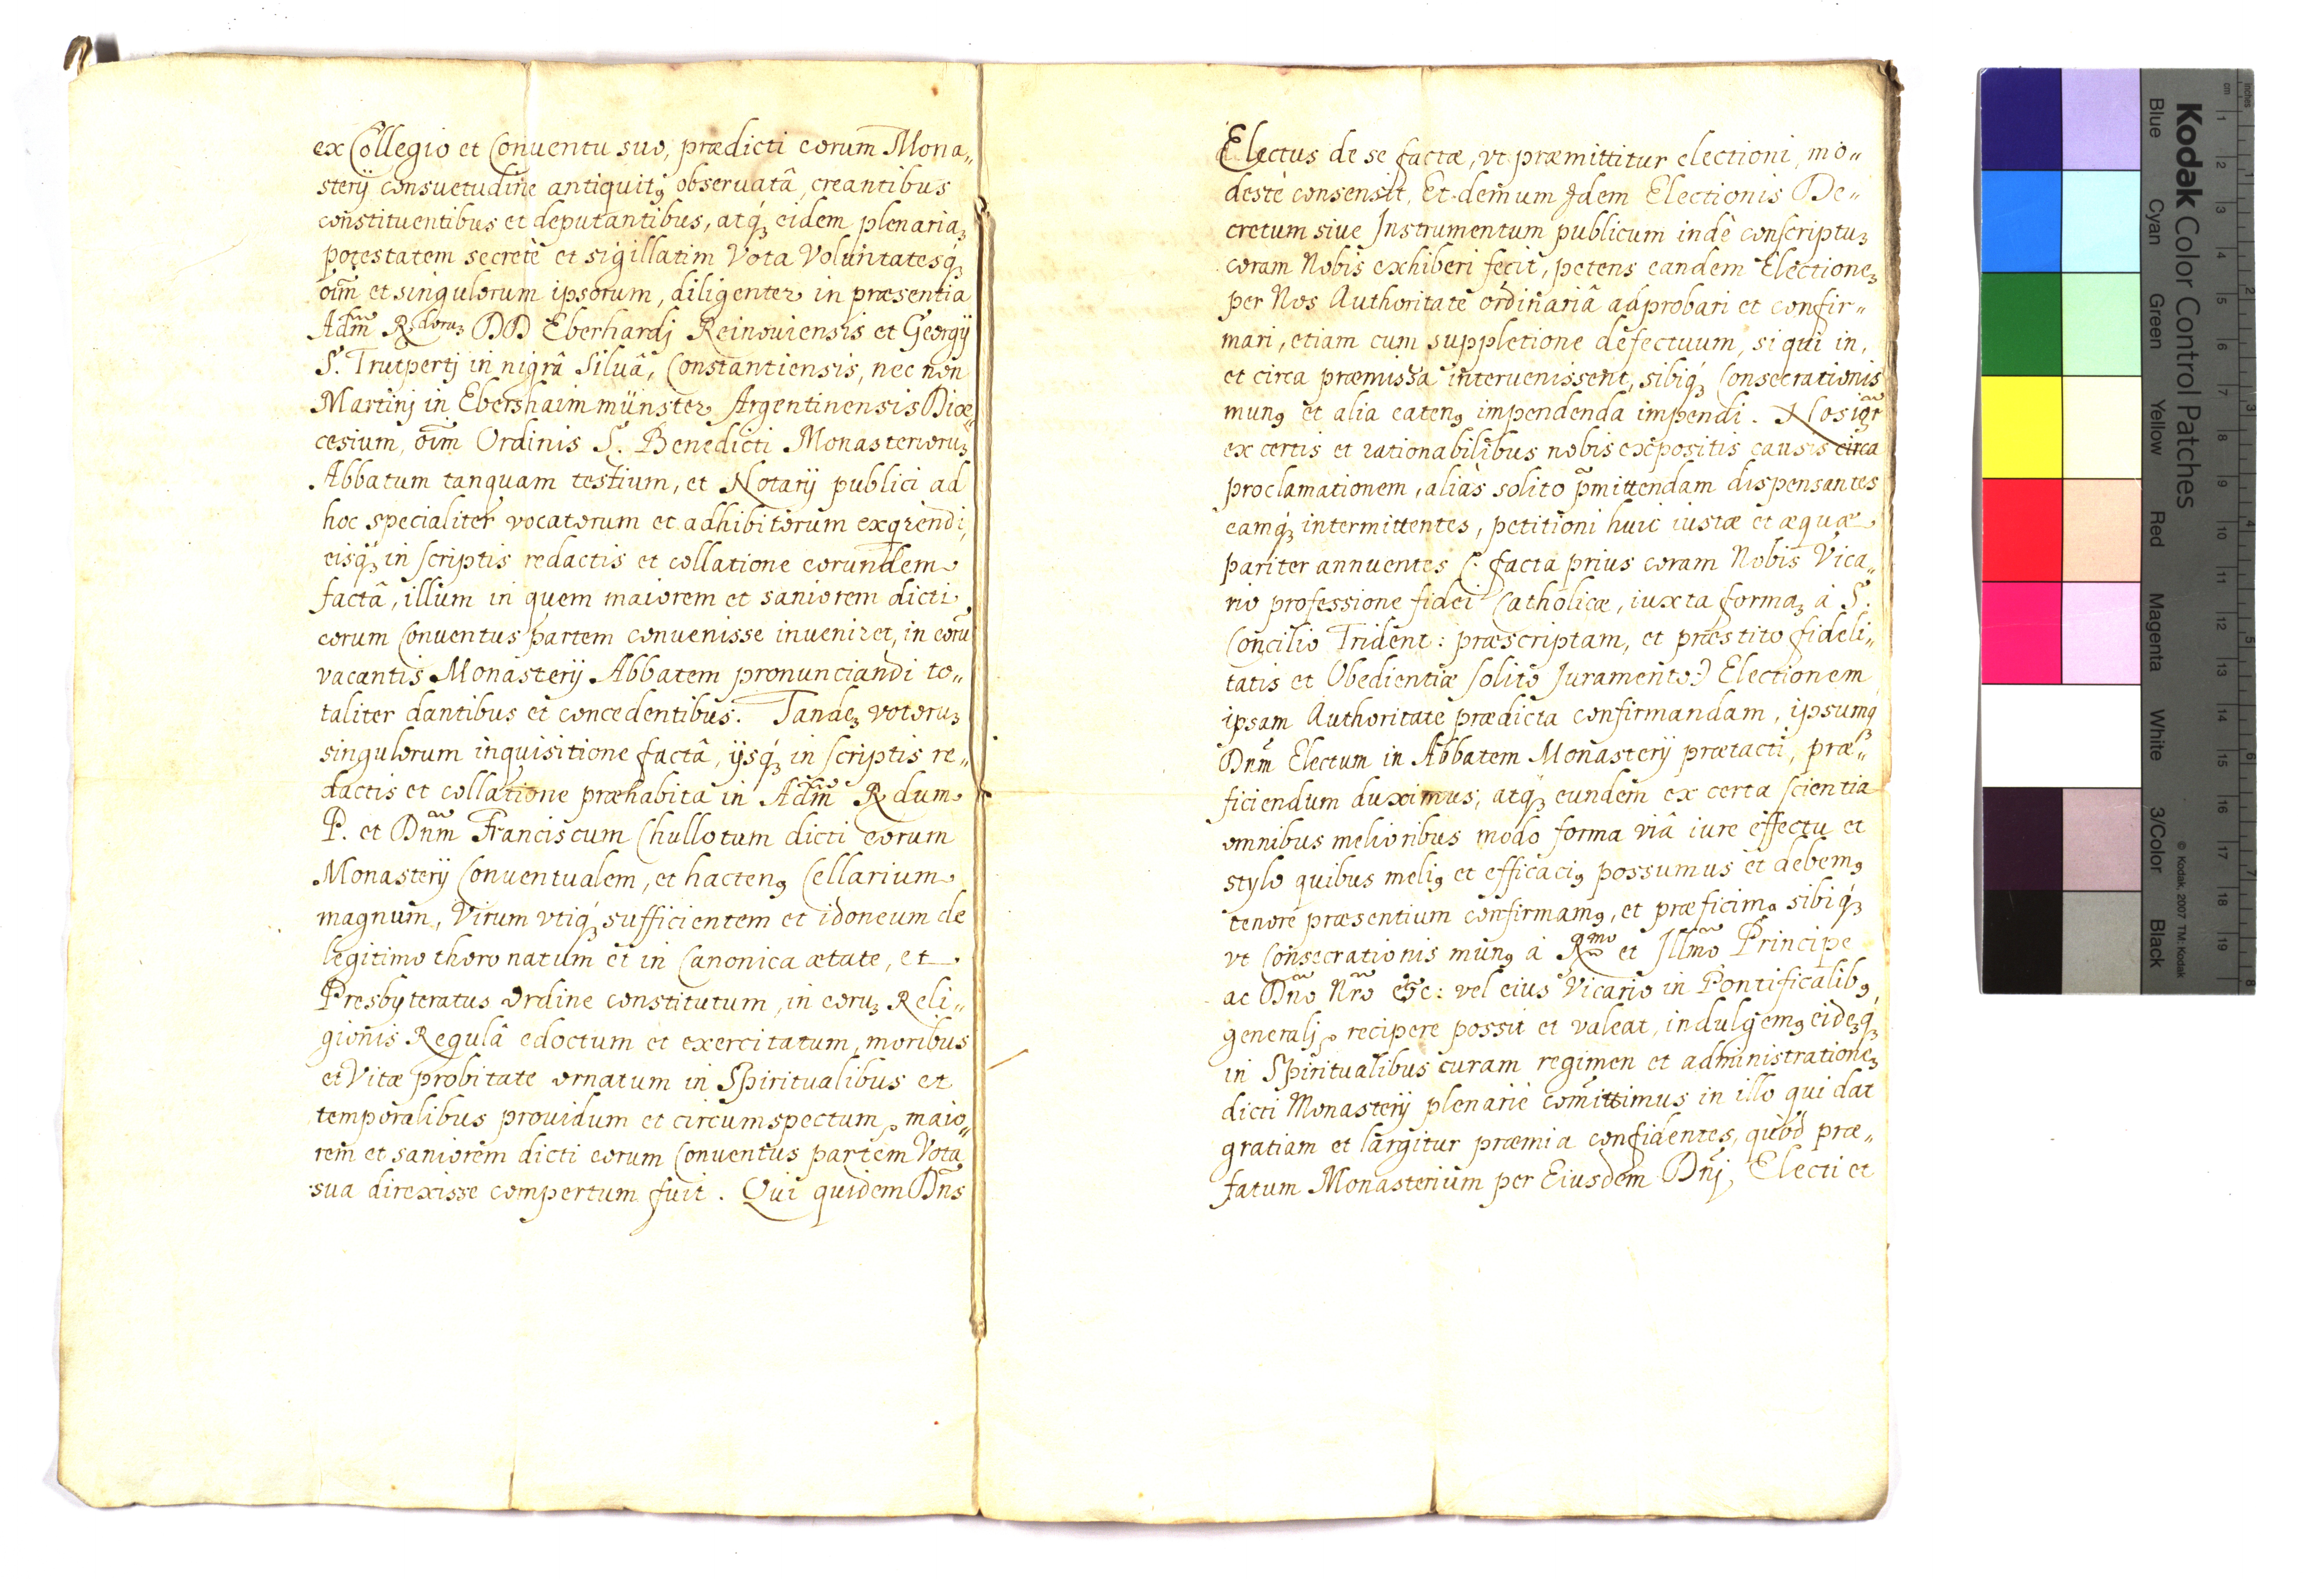 ex Collegio et Conuentu suo, prædicti eorum Mona„
sterij consuetudine antiquitꝰ obseruatâ, creantibus
constituentibus et deputantibus, atqꝫ eidem plenariaꝫ
potestatem secretè et sigillatim Vota Voluntatesqꝫ
oīm et singulorum ipsorum, diligenter in præsentia
Adm̃ R.doruꝫ DD Eberhardj Reinouiensis et Georgij
S. Trutpertj in nigrâ Siluâ, Constantiensis, nec non
Martinj in Ebershaimmünster Argentinensis Diœ„
cesium, oīm Ordinis S. Benedicti Monasterioruꝫ
Abbatum tanquam testium, et Notarij publici ad
hoc specialiter vocatorum et adhibitorum exqrendi,
eisqꝫ in scriptis redactis et collatione eorundem
factâ, illum in quem maiorem et saniorem dicti
eorum Conuentus partem conuenisse inueniret, in eorū
vacantis Monasterij Abbatem pronunciandi to„
taliter dantibus et concedentibus. Tandeꝫ votoruꝫ
singulorum inquisitione factâ, ijsqꝫ in scriptis re„
dactis et collatione præhabita in Adm̃ R dum
P. et Dnm̃ Franciscum Chullotum dicti eorum
Monasterij Conuentualem, et hactenꝰ Cellarium
magnum, Virum vtiqꝫ sufficientem et idoneum de
legitimo thoro natum et in Canonica ætate, et
Presbyteratus Ordine constitutum, in eoruꝫ Reli„
gionis Regulâ edoctum et exercitatum, moribus
et Vitæ probitate ornatum in Spiritualibus et
temporalibus prouidum et circumspectum, maio„
rem et saniorem dicti eorum Conuentus partem Vota
sua direxisse compertum fuit. Qui quidem Dn̄s
Electus de se factæ, vt præmittitur electioni, mo„
destè consensit, Et demum Jdem Electionis De„
cretum siue Instrumentum publicum indè conscriptuꝫ
coram Nobis exhiberi fecit, petens eandem Electioneꝫ
per Nos Authoritate ordinariâ adprobari et confir„
mari, etiam cum suppletione defectuum, si qui in,
et circa præmissa interuenissent, sibiqꝫ Consecrationis
munꝰ et alia eatenꝰ impendenda impendi. Nos igr̃
ex certis et rationabilibus nobis expositis causis circa
proclamationem, aliàs solito p̄mittendam dispensantes
eamqꝫ intermittentes, petitioni huic iustæ et æquæ
pariter annuentes (: facta prius coram Nobis Vica„
rio professione fidei Catholicæ, iuxta formaꝫ à S.
Concilio Trident: præscriptam, et præstito fideli„
tatis et Obedientiæ solito Juramento:) Electionem
ipsam Authoritate prædicta confirmandam, ipsumqꝫ
Dnm̃ Electum in Abbatem Monasterij prætacti, præ„
ficiendum duximus, atqꝫ eundem ex certa scientia
omnibus melioribus modo forma viâ iure effectu et
stylo quibus meliꝰ et efficaciꝰ possumus et debemꝰ
tenore præsentium confirmamꝰ, et præficimꝰ sibiqꝫ
vt Consecrationis munꝰ à Rmo et Illmõ Principe
ac Dnõ Nrõ &c: vel eius Vicario in Pontificalibꝰ
generalj, recipere possit et valeat, indulgemꝰ eideꝫqꝫ
in Spiritualibus curam regimen et administrationeꝫ
dicti Monasterij plenariè com̄ittimus in illo qui dat
gratiam et largitur præmia confidentes, quòd præ„
fatum Monasterium per Eiusdem Dn̄j, Electi et
Kodak Color Control Patches
Blue Cyan Green Yellow Red Magenta White 3/Color Black
© Kodak, 2007 TM: Kodak
cm 1 2 3 4 5 6 7 8 9 10 11 12 13 14 15 16 17 18 19
inches 1 2 3 4 5 6 7 8